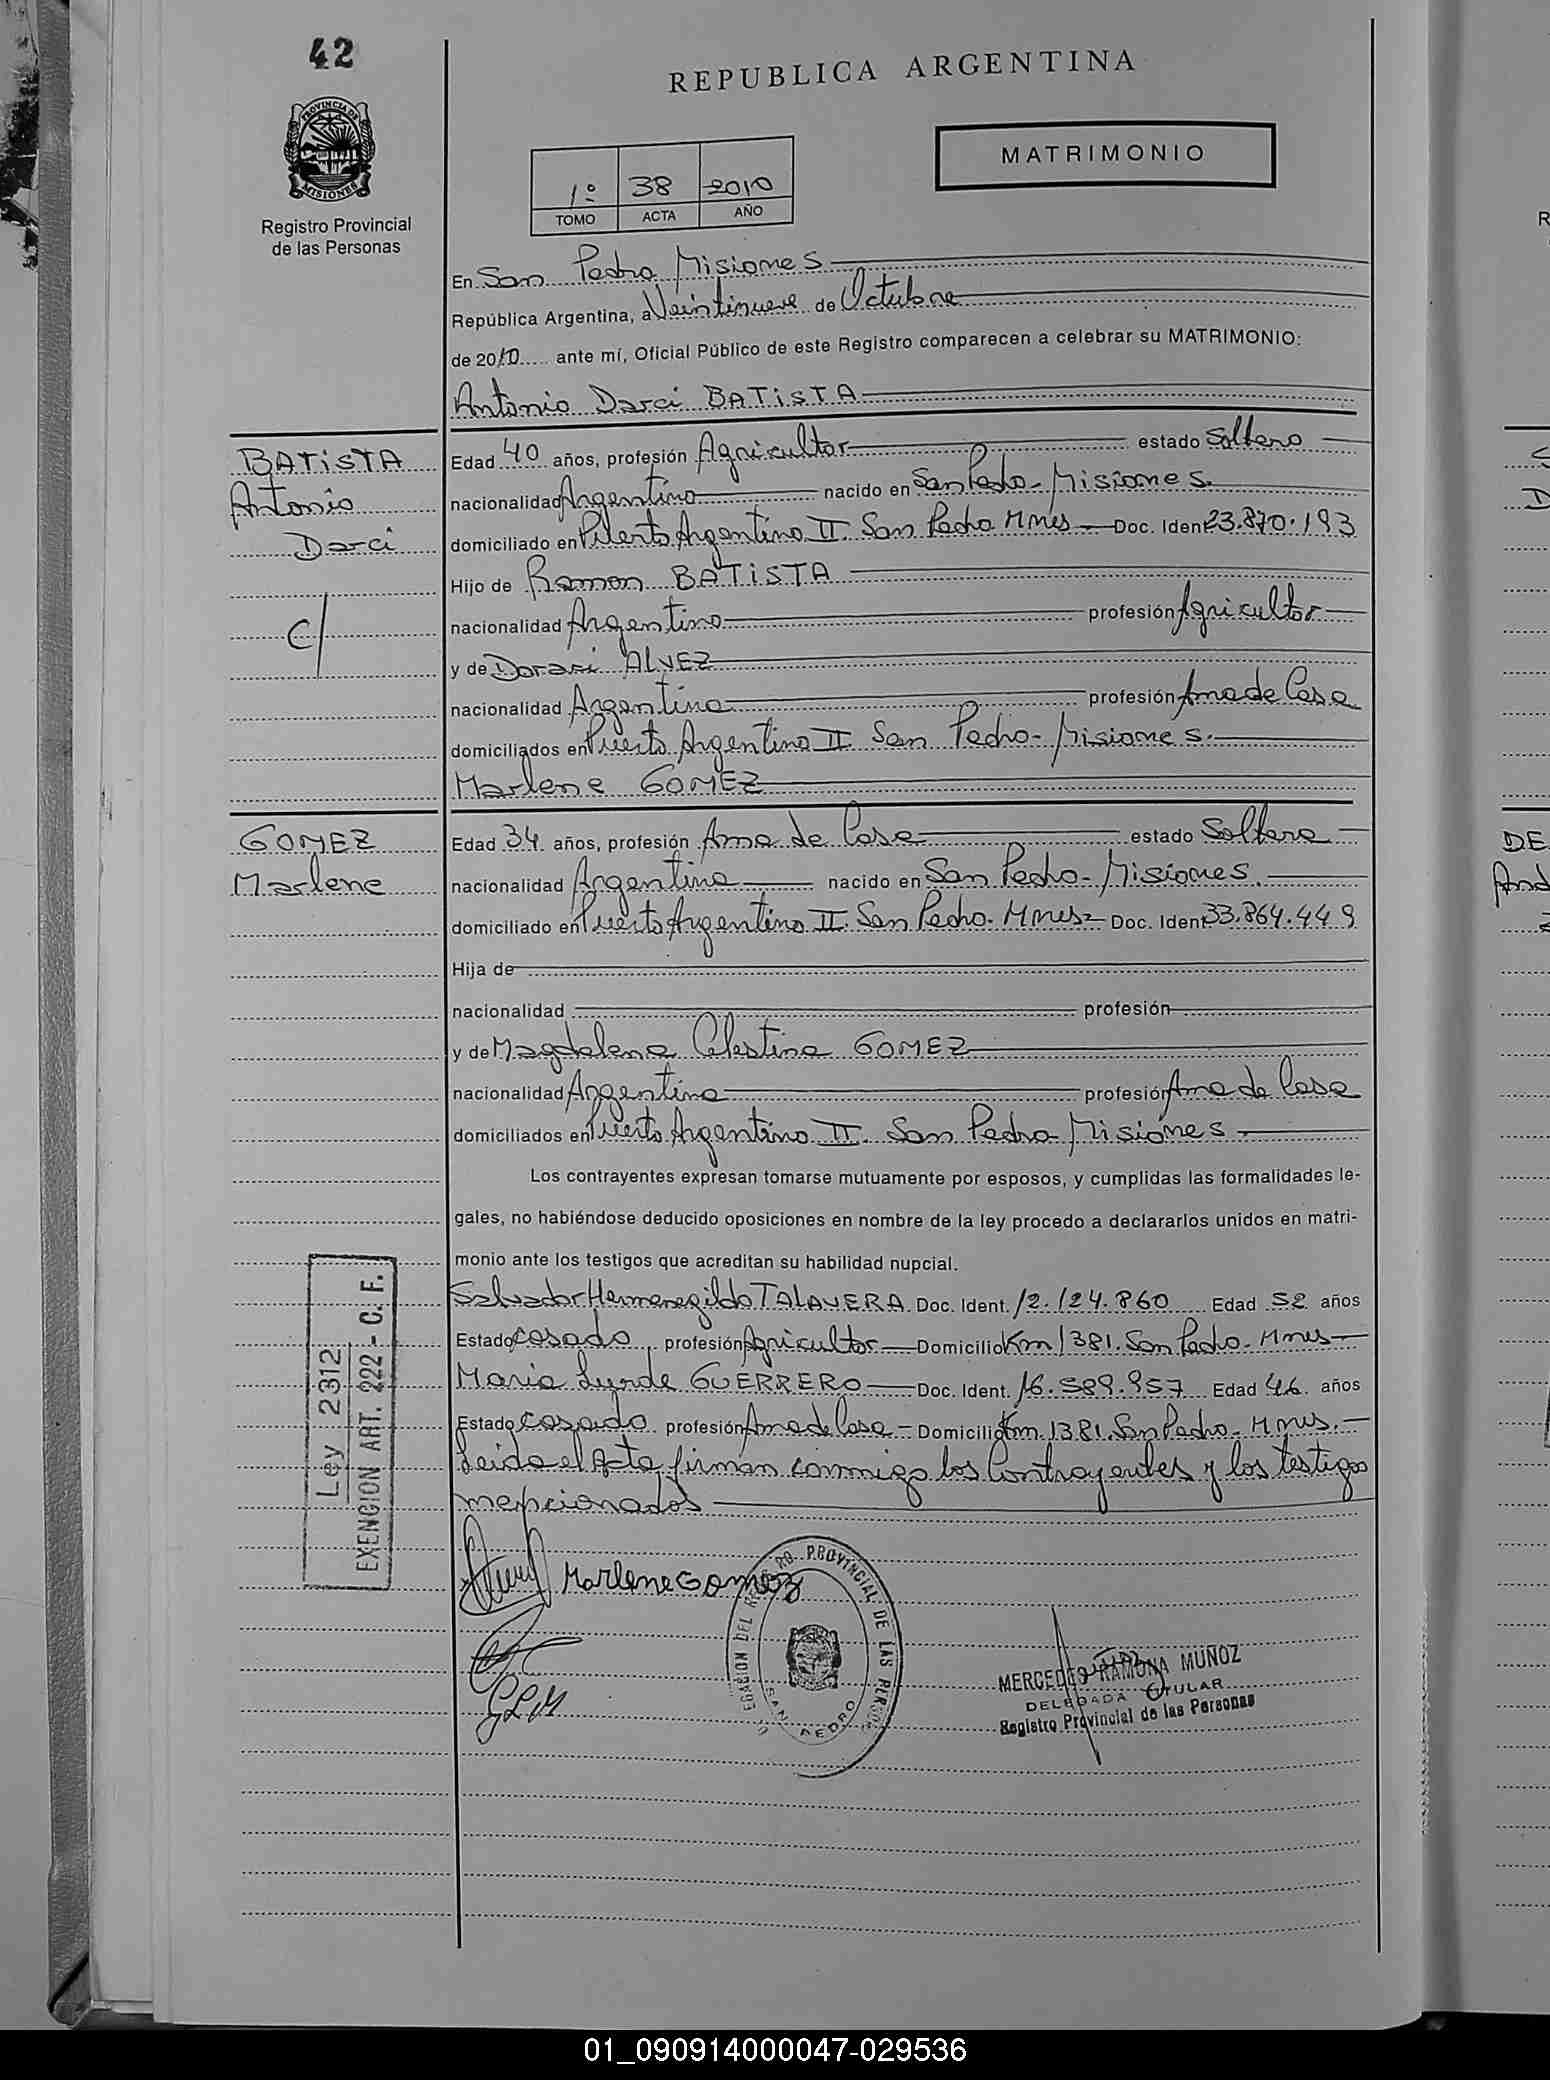 42
REPUBLICA ARGENTINA
PROVINCIA DE
MISIONES
Registro Provincial
de las Personas
1º 38 2010
TOMO ACTA AÑO
MATRIMONIO
En San Pedro Misiones
República Argentina, a Veintinueve de Octubre
de 2010 ante mí, Oficial Público de este Registro comparecen a celebrar su MATRIMONIO:
Antonio Darci BATISTA
BATISTA
Antonio
Darci
C/
Edad 40 años, profesión Agricultor estado Soltero
nacionalidad Argentino nacido en San Pedro - Misiones.
domiciliado en Puerto Argentino II. San Pedro Mnes - Doc. Ident. 23.870.193
Hijo de Ramon BATISTA
nacionalidad Argentino profesión Agricultor
y de Dorari ALVEZ
nacionalidad Argentina profesión Ama de Casa
domiciliados en Puerto Argentino II San Pedro - Misiones.
Marlene GOMEZ
GOMEZ
Marlene
Edad 34 años, profesión Ama de Casa estado Soltera
nacionalidad Argentina nacido en San Pedro - Misiones.
domiciliado en Puerto Argentino II. San Pedro. Mnes - Doc. Ident. 33.864.449
Hija de
nacionalidad profesión
y de Magdalena Celestina GOMEZ
nacionalidad Argentina profesión Ama de Casa
domiciliados en Puerto Argentino II. San Pedro - Misiones -
Los contrayentes expresan tomarse mutuamente por esposos, y cumplidas las formalidades le-
gales, no habiéndose deducido oposiciones en nombre de la ley procedo a declararlos unidos en matri-
monio ante los testigos que acreditan su habilidad nupcial.
Salvador Hermenegildo TALAVERA Doc. Ident. 12.124.860 Edad 52 años
Estado casado profesión Agricultor - Domicilio Km 1381. San Pedro - Mnes -
Maria Lurde GUERRERO - Doc. Ident. 16.589.957 Edad 46 años
Estado casado profesión Ama de Casa - Domicilio Km 1381. San Pedro - Mnes. -
Leida el Acta firman conmigo los Contrayentes y los testigos
mencionados
Ley 2312
EXENCION ART. 222 - C. F.
Marlene Gomez
PROVINCIAL DE LAS PERSONAS
SAN PEDRO
GLM
MERCEDES RAMONA MUÑOZ
DELEGADA TITULAR
Registro Provincial de las Personas
01_090914000047-029536